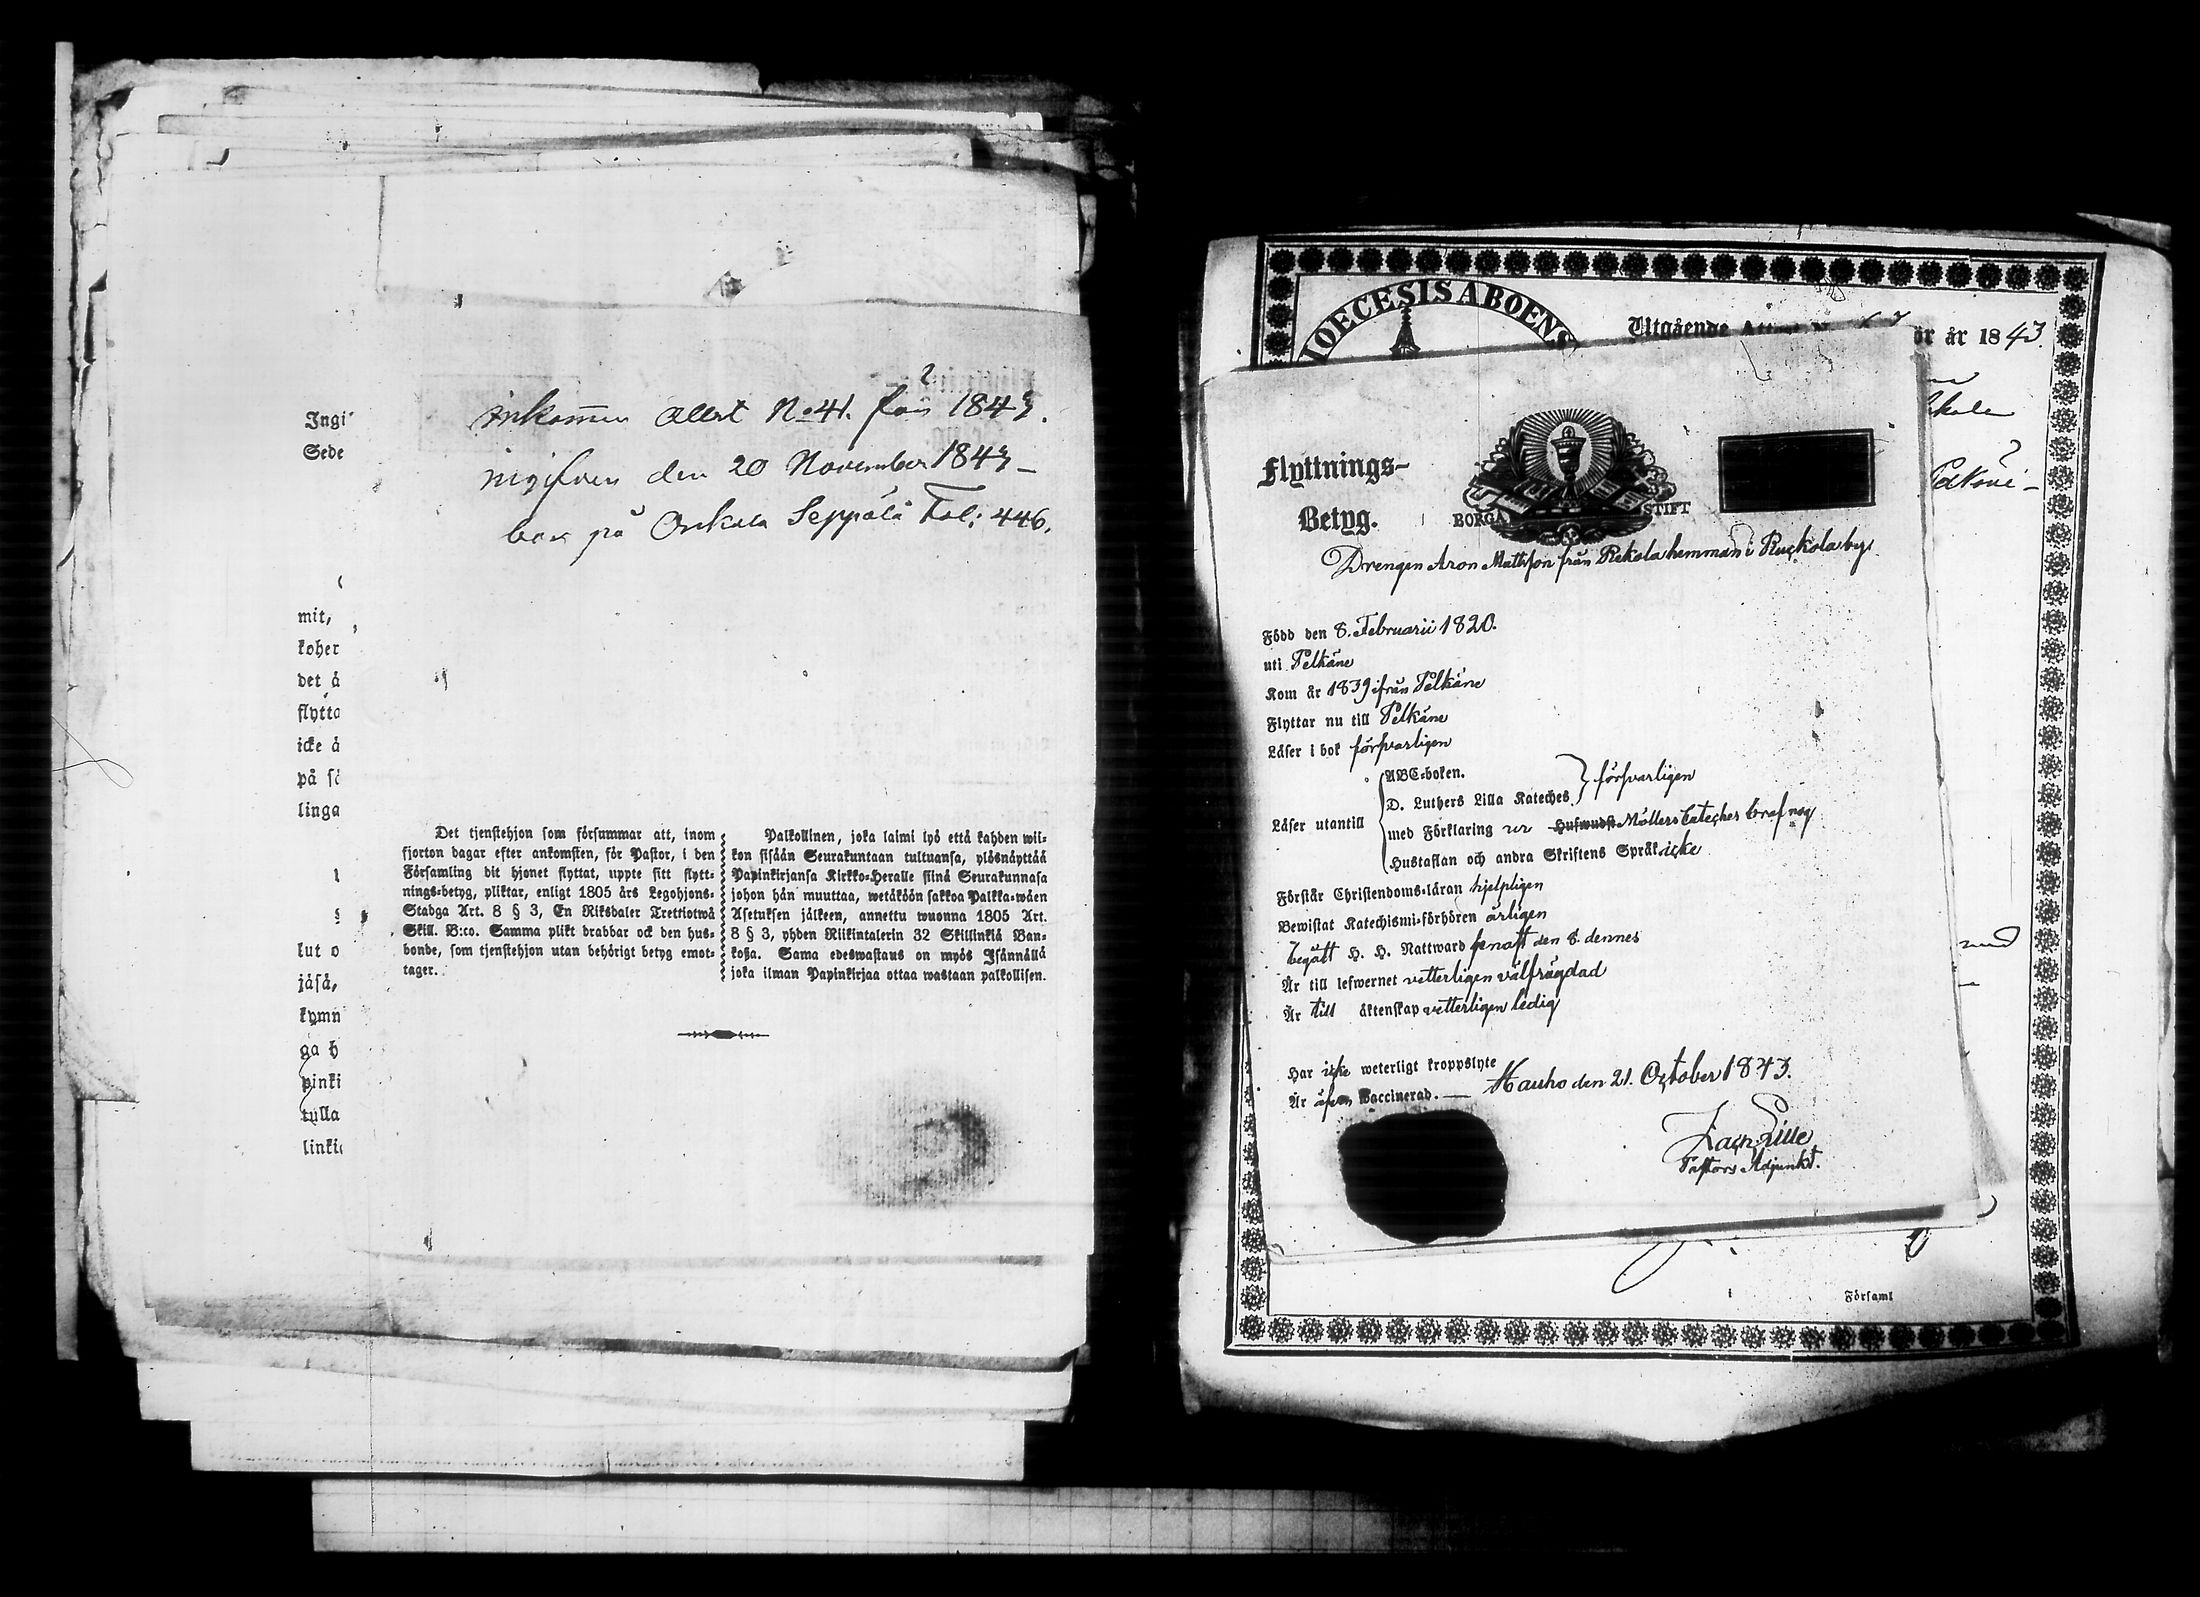 Ingi
Sede
mit,
koher
det å
flytta
icke ä
på sä
linga
lut o
jäsä,
kymn
ga h
pinki
tulla
linki
inkommen attest No 41. för 1843.
ingifven den 20 November 1843 –
bor på Onkala Seppälä Fol: 446.
Det tjenstehjon som försummar att, inom
fjorton dagar efter ankomsten, för Pastor, i den
Församling dit hjonet flyttat, uppte sitt flytt-
nings-betyg, pliktar, enligt 1805 års Legohjons-
Stadga Art. 8 § 3, En Riksdaler Trettiotwå
Skill. B:co. Samma plikt drabbar ock den hus-
bonde, som tjenstehjon utan behörigt betyg emot-
tager.
Palkollinen, joka laimi lyö että kahden wii-
kon sisään Seurakuntaan tultuansa, ylösnäyttää
Papinkirjansa Kirkko-Heralle siinä Seurakunnasa
johon hän muuttaa, wetäköön sakkoa Palkka-wäen
Asetuksen jälkeen, annettu wuonna 1805 Art.
8 § 3, yhden Riikintalerin 32 Skillinkiä Ban-
kossa. Sama edeswastaus on myös Isännällä
joka ilman Papinkirjaa ottaa wastaan palkollisen.
DIOECESIS ABOENS
Utgående
ör år 1843
Flyttnings-
Betyg.
BORGÅ STIFT
Drengen Aron Mattsson från Rekola hemman i Ruckola by.
Född den 8. Februarii 1820.
uti Pelkäne
Kom år 1839 ifrån Pelkäne
Flyttar nu till Pelkäne
Läser i bok försvarligen
Läser utantill
ABC-boken.
D. Luthers Lilla Kateches } försvarligen
med Förklaring ur Möllers Cateches
Hustaflan och andra Skriftens Språk icke
Förstår Christendoms-läran hjelpligen
Bewistat Katechismi-förhören årligen
begått H. H. Nattward senast den 8. dennes
Är till lefwernet vetterligen välfrägdad
Är till äktenskap vetterligen ledig
Har icke weterligt kroppslyte
Är äfven Vaccinerad. —
Hauho den 21. October 1843.
Zach: Lille
Pastors Adjunkt.
Församl